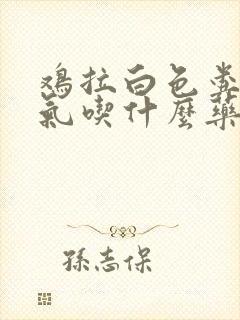 鸡拉白色粪
氣喫什麼藥
孫志保